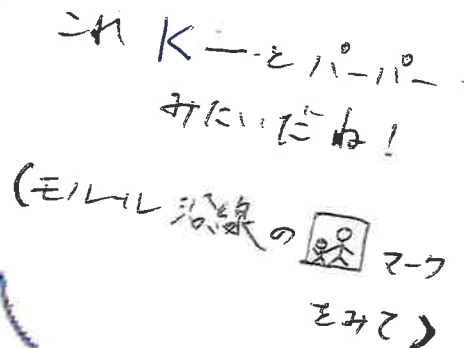 これ Kーとパーパー
みたいだね!
(モノレール沿線の マーク
をみて)